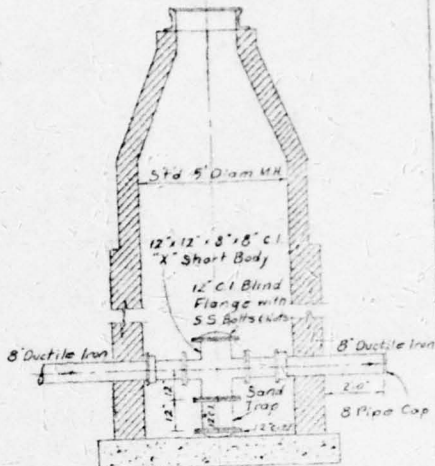 Std 5' Diam M.H.
12" x 12" x 8" x 8" C.I.
"X" Short Body
12" C.I. Blind
Flange with
S.S. Bolts & Nuts
8" Ductile Iron
8" Ductile Iron
2'-0"
Sand
Trap
8 Pipe Cap
12"
12"
12"